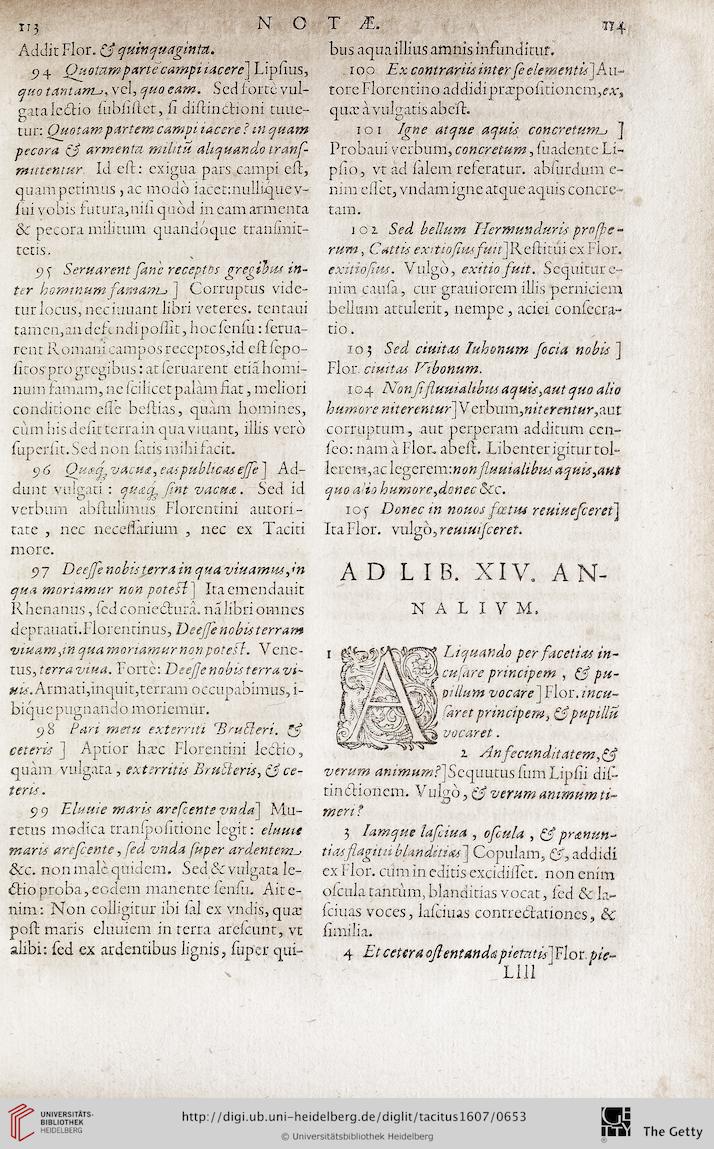 113 N O T Æ. 114
Addit Flor. & quinquaginta.
94 Quotam partē campi iacere] Lipsius,
quo tantam, vel, quo eam. Sed forte vul-
gata lectio subsistet, si distinctioni iuue-
tur: Quotam partem campi iacere? in quam
pecora & armenta militū aliquando trans-
mittentur. Id est: exigua pars campi est,
quam petimus, ac modò iacet: nullique v-
sui vobis futura, nisi quòd in eam armenta
& pecora militum quandóque transmit-
tetis.
95 Seruarent sanè receptos gregibus in-
ter hominum famam] Corruptus vide-
tur locus, nec iuuant libri veteres. tentaui
tamen, an defendi possit, hoc sensu: serua-
rent Romani campos receptos, id est sepo-
sitos pro gregibus: at seruarent etiā homi-
num famam, ne scilicet palàm fiat, meliori
conditione esse bestias, quàm homines,
cùm his desit terra in qua viuant, illis verò
supersit. Sed non satis mihi facit.
96 Quæq; vacuæ, eas publicas esse] Ad-
dunt vulgati: quæq; sint vacuæ. Sed id
verbum abstulimus Florentini autori-
tate, nec necessarium, nec ex Taciti
more.
97 Deesse nobis terra in qua viuamus, in
qua moriamur non potest] Ita emendauit
Rhenanus, sed coniecturâ. nā libri omnes
deprauati. Florentinus, Deesse nobis terram
viuam, in qua moriamur non potest. Vene-
tus, terra viua. Fortè: Deesse nobis terra vi-
uis. Armati, inquit, terram occupabimus, i-
bique pugnando moriemur.
98 Pari metu exterriti Bructeri. &
ceteris] Aptior hæc Florentini lectio,
quàm vulgata, exterritis Bructeris, & ce-
teris.
99 Eluuie maris arescente vnda] Mu-
retus modica transpositione legit: eluuie
maris arescente, sed vnda super ardentem
&c. non malè quidem. Sed & vulgata le-
ctio proba, eodem manente sensu. Ait e-
nim: Non colligitur ibi sal ex vndis, quæ
post maris eluuiem in terra arescunt, vt
alibi: sed ex ardentibus lignis, super qui-
bus aqua illius amnis infunditur.
100 Ex contrariis inter se elementis] Au-
tore Florentino addidi præpositionem, ex,
quæ à vulgatis abest.
101 Igne atque aquis concretum]
Probaui verbum, concretum, suadente Li-
psio, vt ad salem referatur. absurdum e-
nim esset, vndam igne atque aquis concre-
tam.
102 Sed bellum Hermunduris prospe-
rum, Cattis exitiosius fuit] Restitui ex Flor.
exitiosius. Vulgò, exitio fuit. Sequitur e-
nim causa, cur grauiorem illis perniciem
bellum attulerit, nempe, aciei consecra-
tio.
103 Sed ciuitas Iuhonum socia nobis]
Flor. ciuitas Vibonum.
104 Non si fluuialibus aquis, aut quo alio
humore niterentur] Verbum, niterentur, aut
corruptum, aut perperam additum cen-
seo: nam à Flor. abest. Libenter igitur tol-
lerem, ac legerem: non fluuialibus aquis, aut
quo alio humore, donec &c.
105 Donec in nouos fœtus reuiuesceret]
Ita Flor. vulgò, reuiuisceret.
AD LIB. XIV. AN-
NALIVM.
1 ALiquando per facetias in-
cusare principem, & pu-
pillum vocare] Flor. incu-
saret principem, & pupillū
vocaret.
2 An fecunditatem, &
verum animum?] Sequutus sum Lipsii dis-
tinctionem. Vulgò, & verum animum ti-
meri?
3 Iamque lasciua, oscula, & prænun-
tias flagitii blanditias] Copulam, &, addidi
ex Flor. cùm in editis excidisset. non enim
oscula tantùm, blanditias vocat, sed & la-
sciuas voces, lasciuas contrectationes, &
similia.
4 Et cetera ostentanda pietatis] Flor. pie-
Llll
UNIVERSITÄTS-
BIBLIOTHEK
HEIDELBERG
http://digi.ub.uni-heidelberg.de/diglit/tacitus1607/0653
© Universitätsbibliothek Heidelberg
The Getty